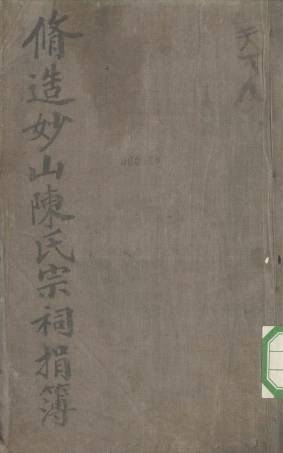 天下人
脩造妙山陳氏宗祠捐簿